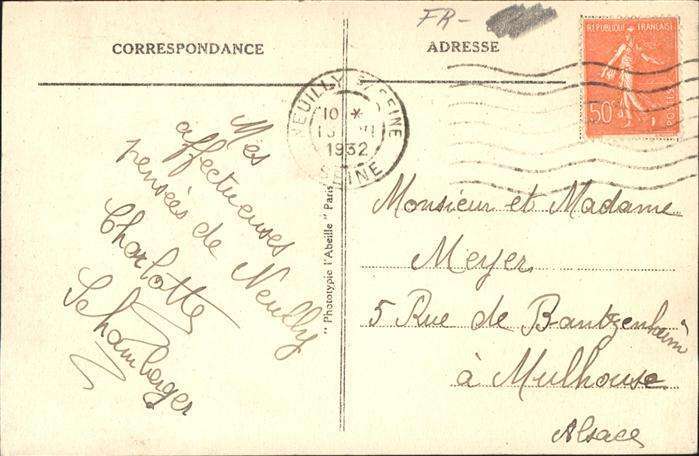 FR-
CORRESPONDANCE
ADRESSE
REPUBLIQUE FRANÇAISE
50c
POSTES
NEUILLY S/ SEINE
10 *
VI
1932
SEINE
Mes
affectueuses
pensées de Neuilly
Charlotte
Schamberger
"Phototypie l'Abeille" Paris
Monsieur et Madame
Meyer
5 Rue de Bantzenheim
à Mulhouse
Alsace